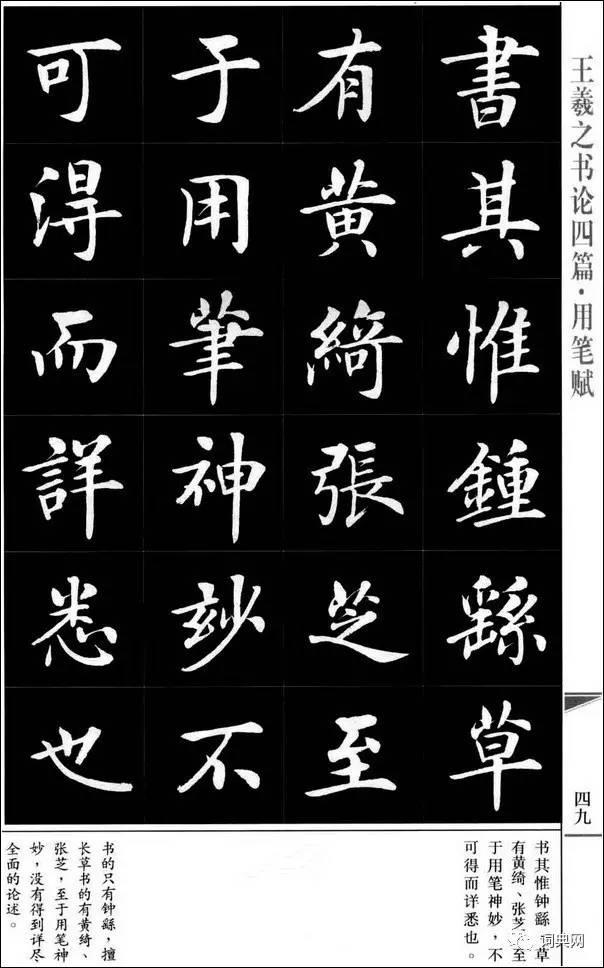 王羲之书论四篇·用笔赋
四九
書其惟鍾繇草
有黄綺張芝至
于用筆神妙不
可得而詳悉也
书其惟钟繇，草
有黄绮、张芝，至
于用笔神妙，不
可得而详悉也。
书的只有钟繇，擅
长草书的有黄绮、
张芝，至于用笔神
妙，没有得到详尽
全面的论述。
词典网